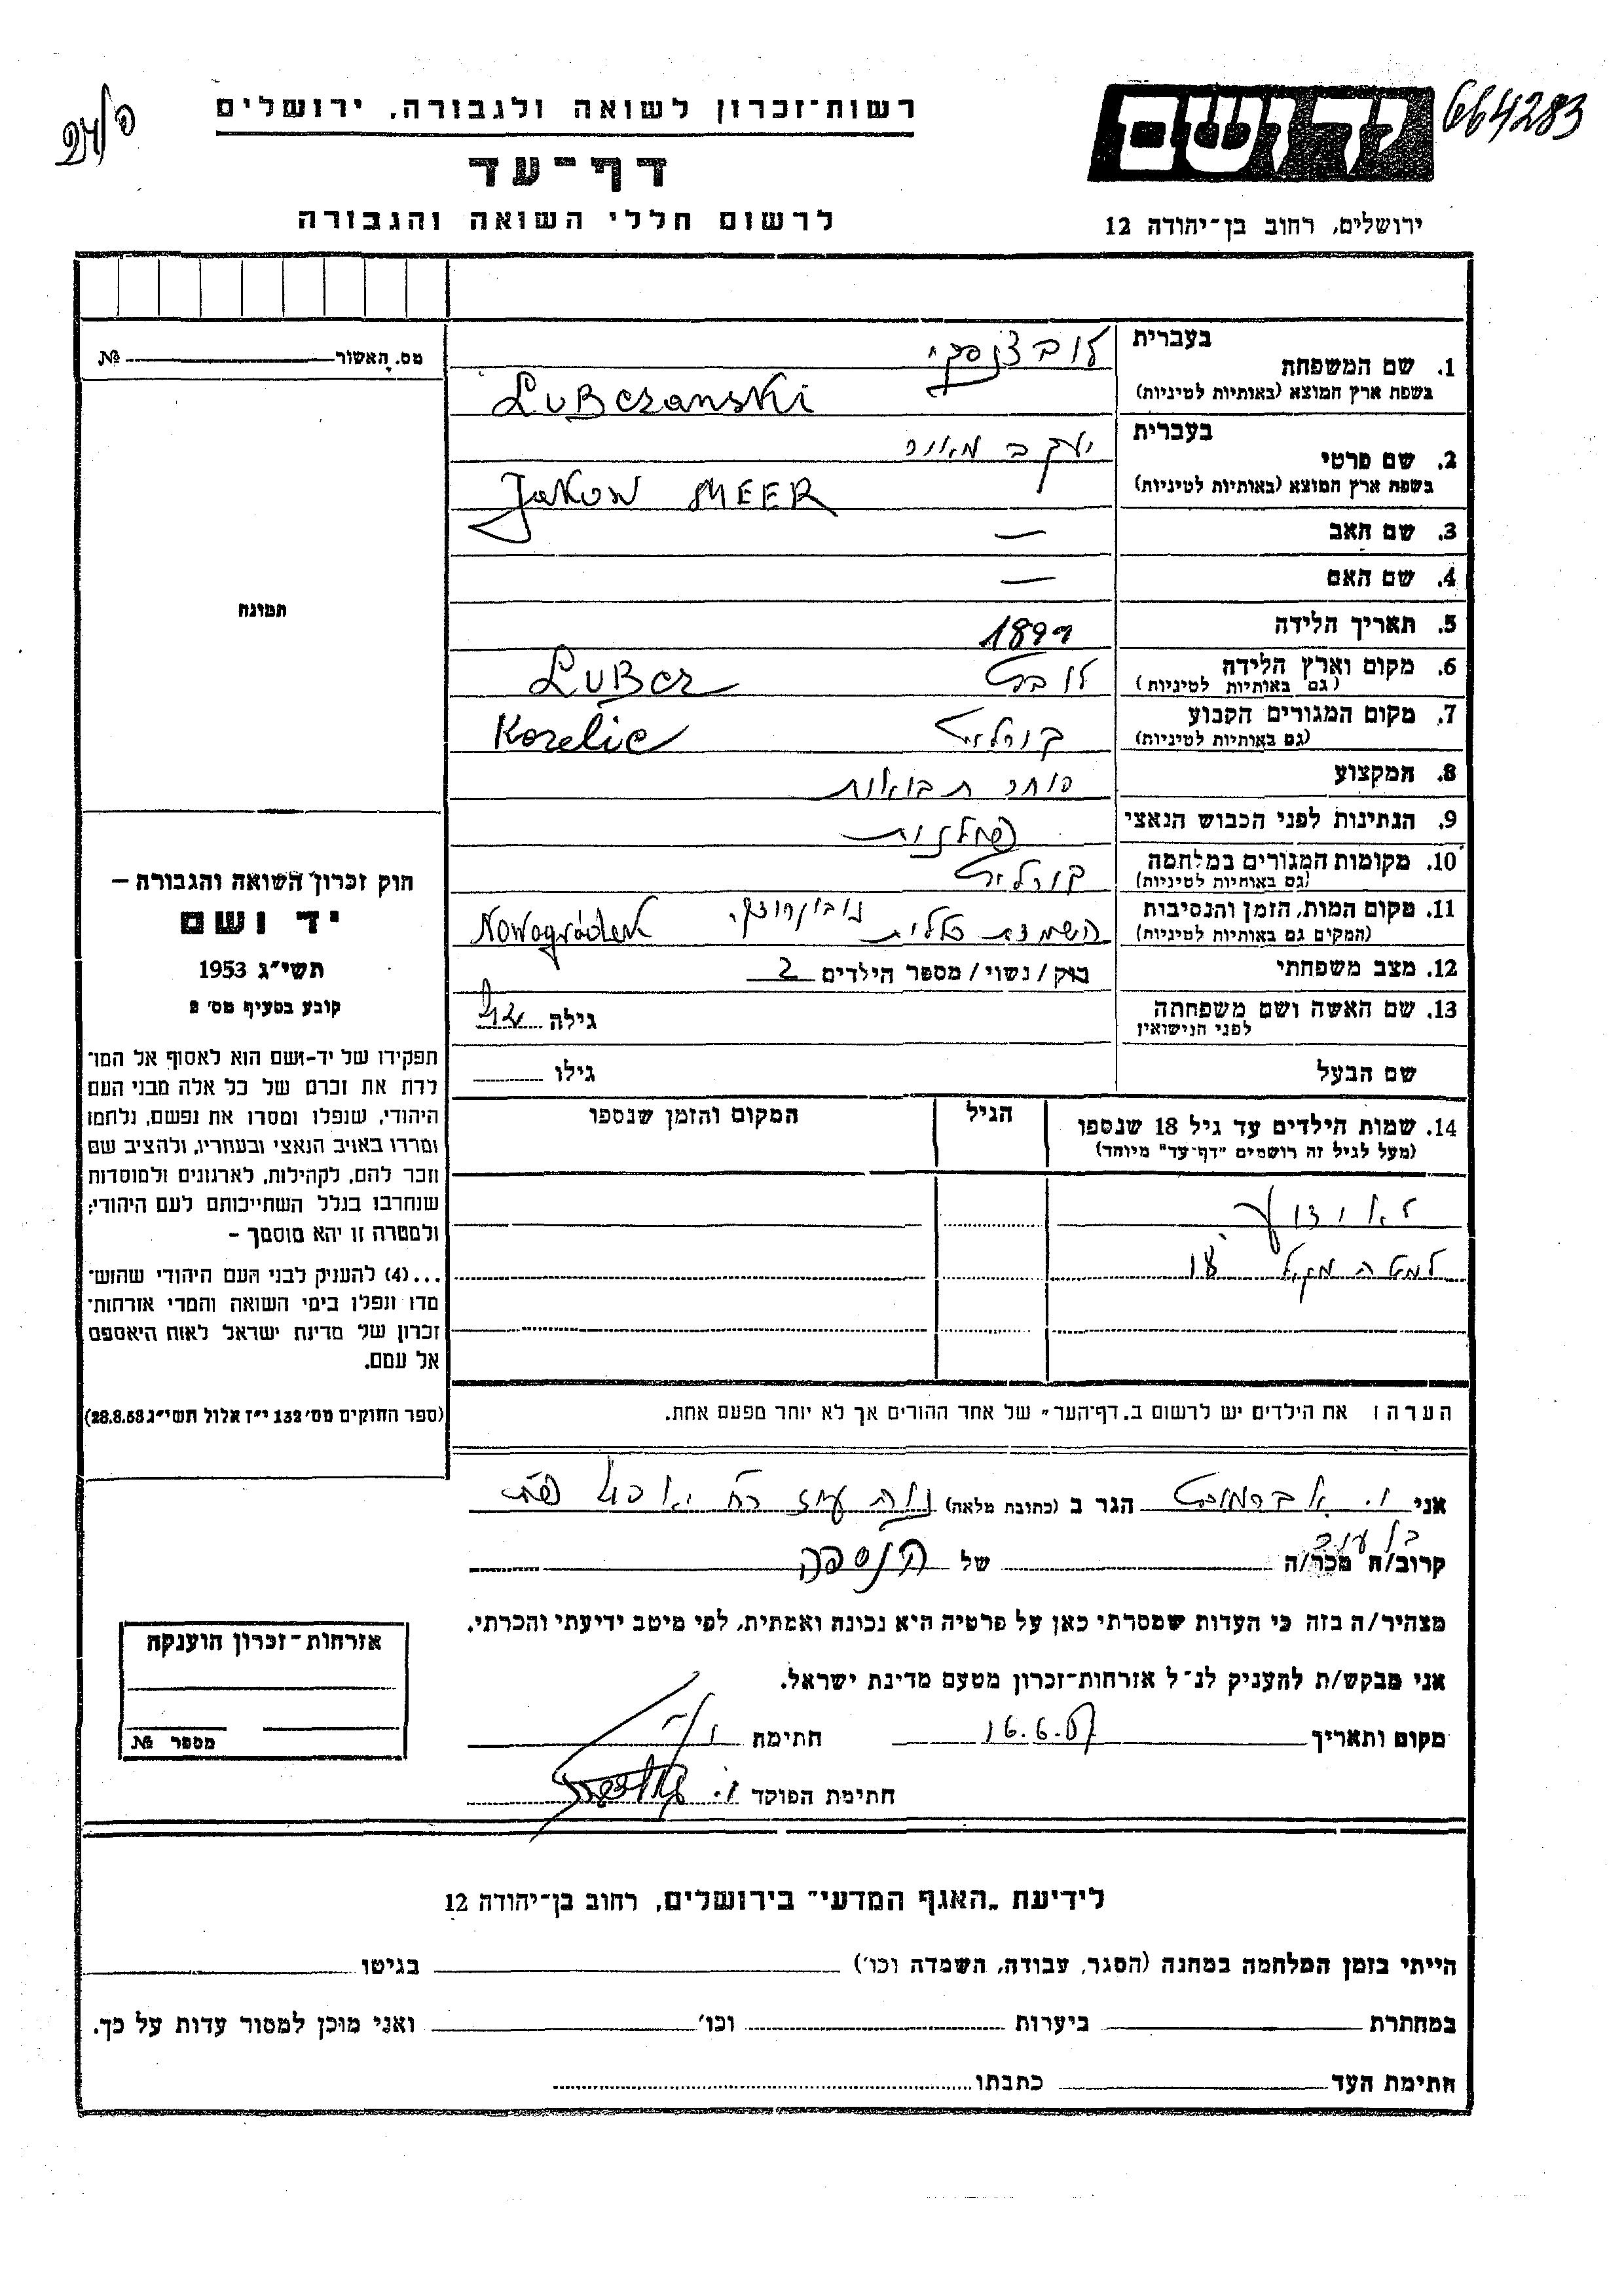 664283
יד ושם
רשות־זכרון לשואה ולגבורה, ירושלים
דף־עד
לרשום חללי השואה והגבורה
ירושלים, רחוב בן־יהודה 12
מס. האשור № 
1. שם המשפחה בעברית
בשפת ארץ המוצא (באותיות לטיניות) Lubczanski
2. שם פרטי בעברית יעקב מאיר
בשפת ארץ המוצא (באותיות לטיניות) Jakow MEER
3. שם האב —
4. שם האם —
5. תאריך הלידה
6. מקום וארץ הלידה (גם באותיות לטיניות) לובץ Lubcz
7. מקום המגורים הקבוע (גם באותיות לטיניות) קורליץ Korelic
8. המקצוע סוחר תבואות
9. הנתינות לפני הכבוש הנאצי פולנית
10. מקומות המגורים במלחמה (גם באותיות לטיניות) קורליץ
11. מקום המות, הזמן והנסיבות (המקום גם באותיות לטיניות) השמדה כללית Nowogródek
12. מצב משפחתי רוק / נשוי / מספר הילדים 2
13. שם האשה ושם משפחתה לפני הנישואין גילה
שם הבעל גילו
14. שמות הילדים עד גיל 18 שנספו
(מעל לגיל זה רושמים "דף־עד" מיוחד)
הגיל
המקום והזמן שנספו
למטה מגיל 18
הערה: את הילדים יש לרשום ב"דף־העד" של אחד ההורים אך לא יותר מפעם אחת.
תמונה
חוק זכרון השואה והגבורה –
יד ושם
תשי״ג 1953
קובע בסעיף מס׳ 2
תפקידו של יד־ושם הוא לאסוף אל המו־
לדת את זכרם של כל אלה מבני העם
היהודי, שנפלו ומסרו את נפשם, נלחמו
ומרדו באויב הנאצי ובעוזריו, ולהציב שם
וזכר להם, לקהילות, לארגונים ולמוסדות
שנחרבו בגלל השתייכותם לעם היהודי;
ולמטרה זו יהא מוסמך –
...(4) להעניק לבני העם היהודי שהוש־
מדו ונפלו בימי השואה והמרי אזרחות־
זכרון של מדינת ישראל לאות היאספם
אל עמם.
(ספר החוקים מס׳ 132 י״ז אלול תשי״ג 28.8.53)
אני ו. אברמוביץ הגר ב (כתובת מלאה)
בן עיר
קרוב/ה מכר/ה של הנספה
מצהיר/ה בזה כי העדות שמסרתי כאן על פרטיה היא נכונה ואמתית, לפי מיטב ידיעתי והכרתי.
אני מבקש/ת להעניק לנ״ל אזרחות־זכרון מטעם מדינת ישראל.
מקום ותאריך 16.6.57 חתימה
חתימת הפוקד
אזרחות־זכרון הוענקה
מספר №
לידיעת "האגף המדעי" בירושלים, רחוב בן־יהודה 12
הייתי בזמן המלחמה במחנה (הסגר, עבודה, השמדה וכו׳) בגיטו
במחתרת ביערות וכו׳ ואני מוכן למסור עדות על כך.
חתימת העד כתבתו